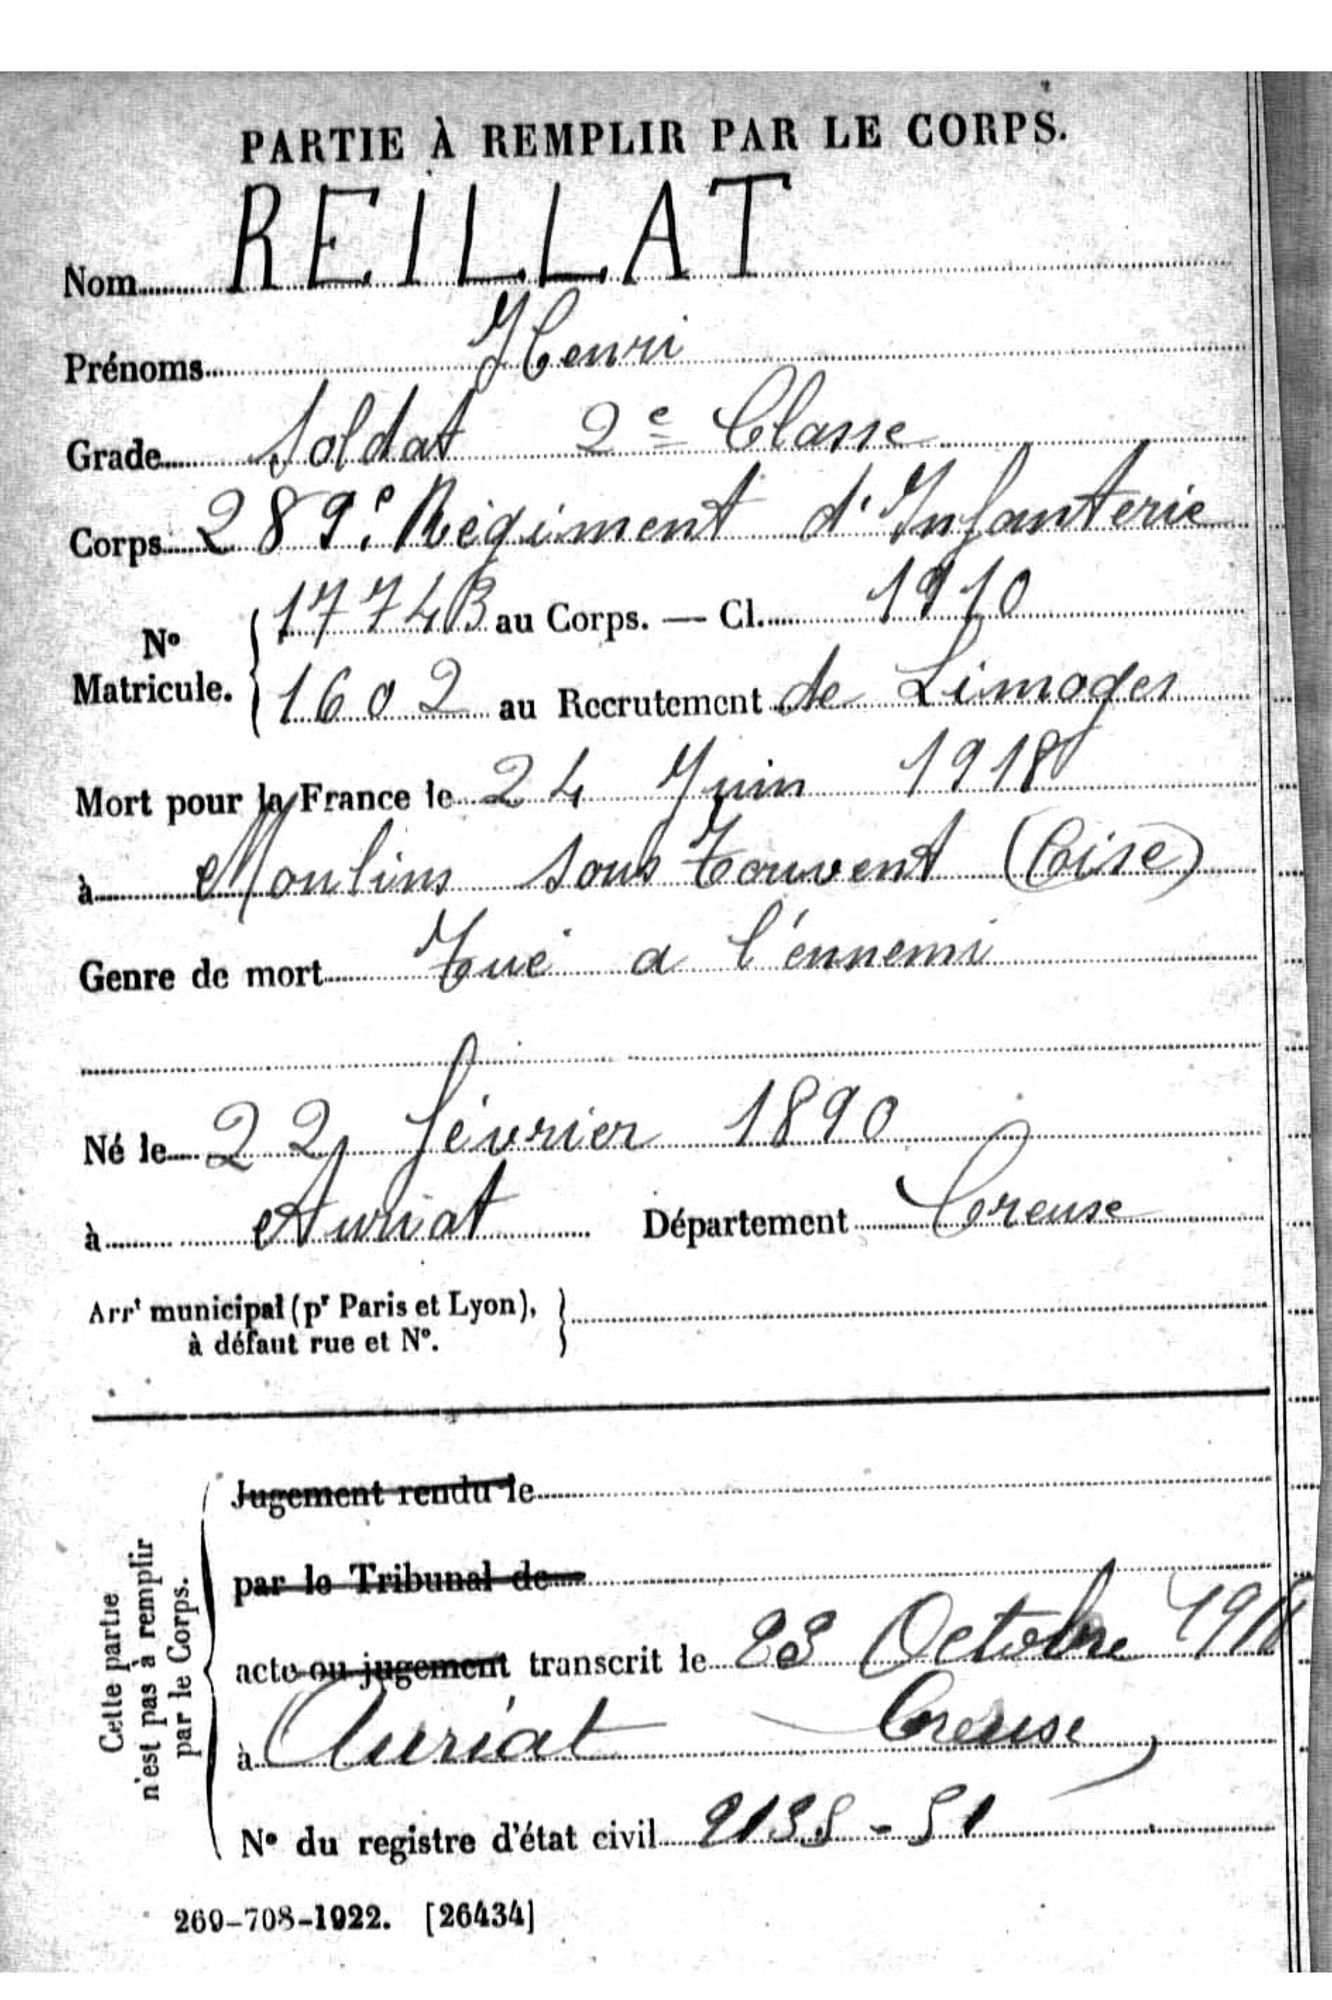 PARTIE À REMPLIR PAR LE CORPS.
Nom REILLAT
Prénoms Henri
Grade Soldat 2e Classe
Corps 289e Régiment d'Infanterie
No Matricule. { 17743 au Corps. — Cl. 1910
1602 au Recrutement de Limoges
Mort pour la France le 24 Juin 1918
à Moulins sous Touvent (Oise)
Genre de mort Tué a l'ennemi
Né le 22 février 1890
à Auriat Département Creuse
Arrt municipal (pr Paris et Lyon), }
à défaut rue et No.
Cette partie
n'est pas à remplir
par le Corps.
Jugement rendu le
par le Tribunal de
acte ou jugement transcrit le 23 Octobre
à Auriat Creuse
No du registre d'état civil
260-708-1922. [26434]